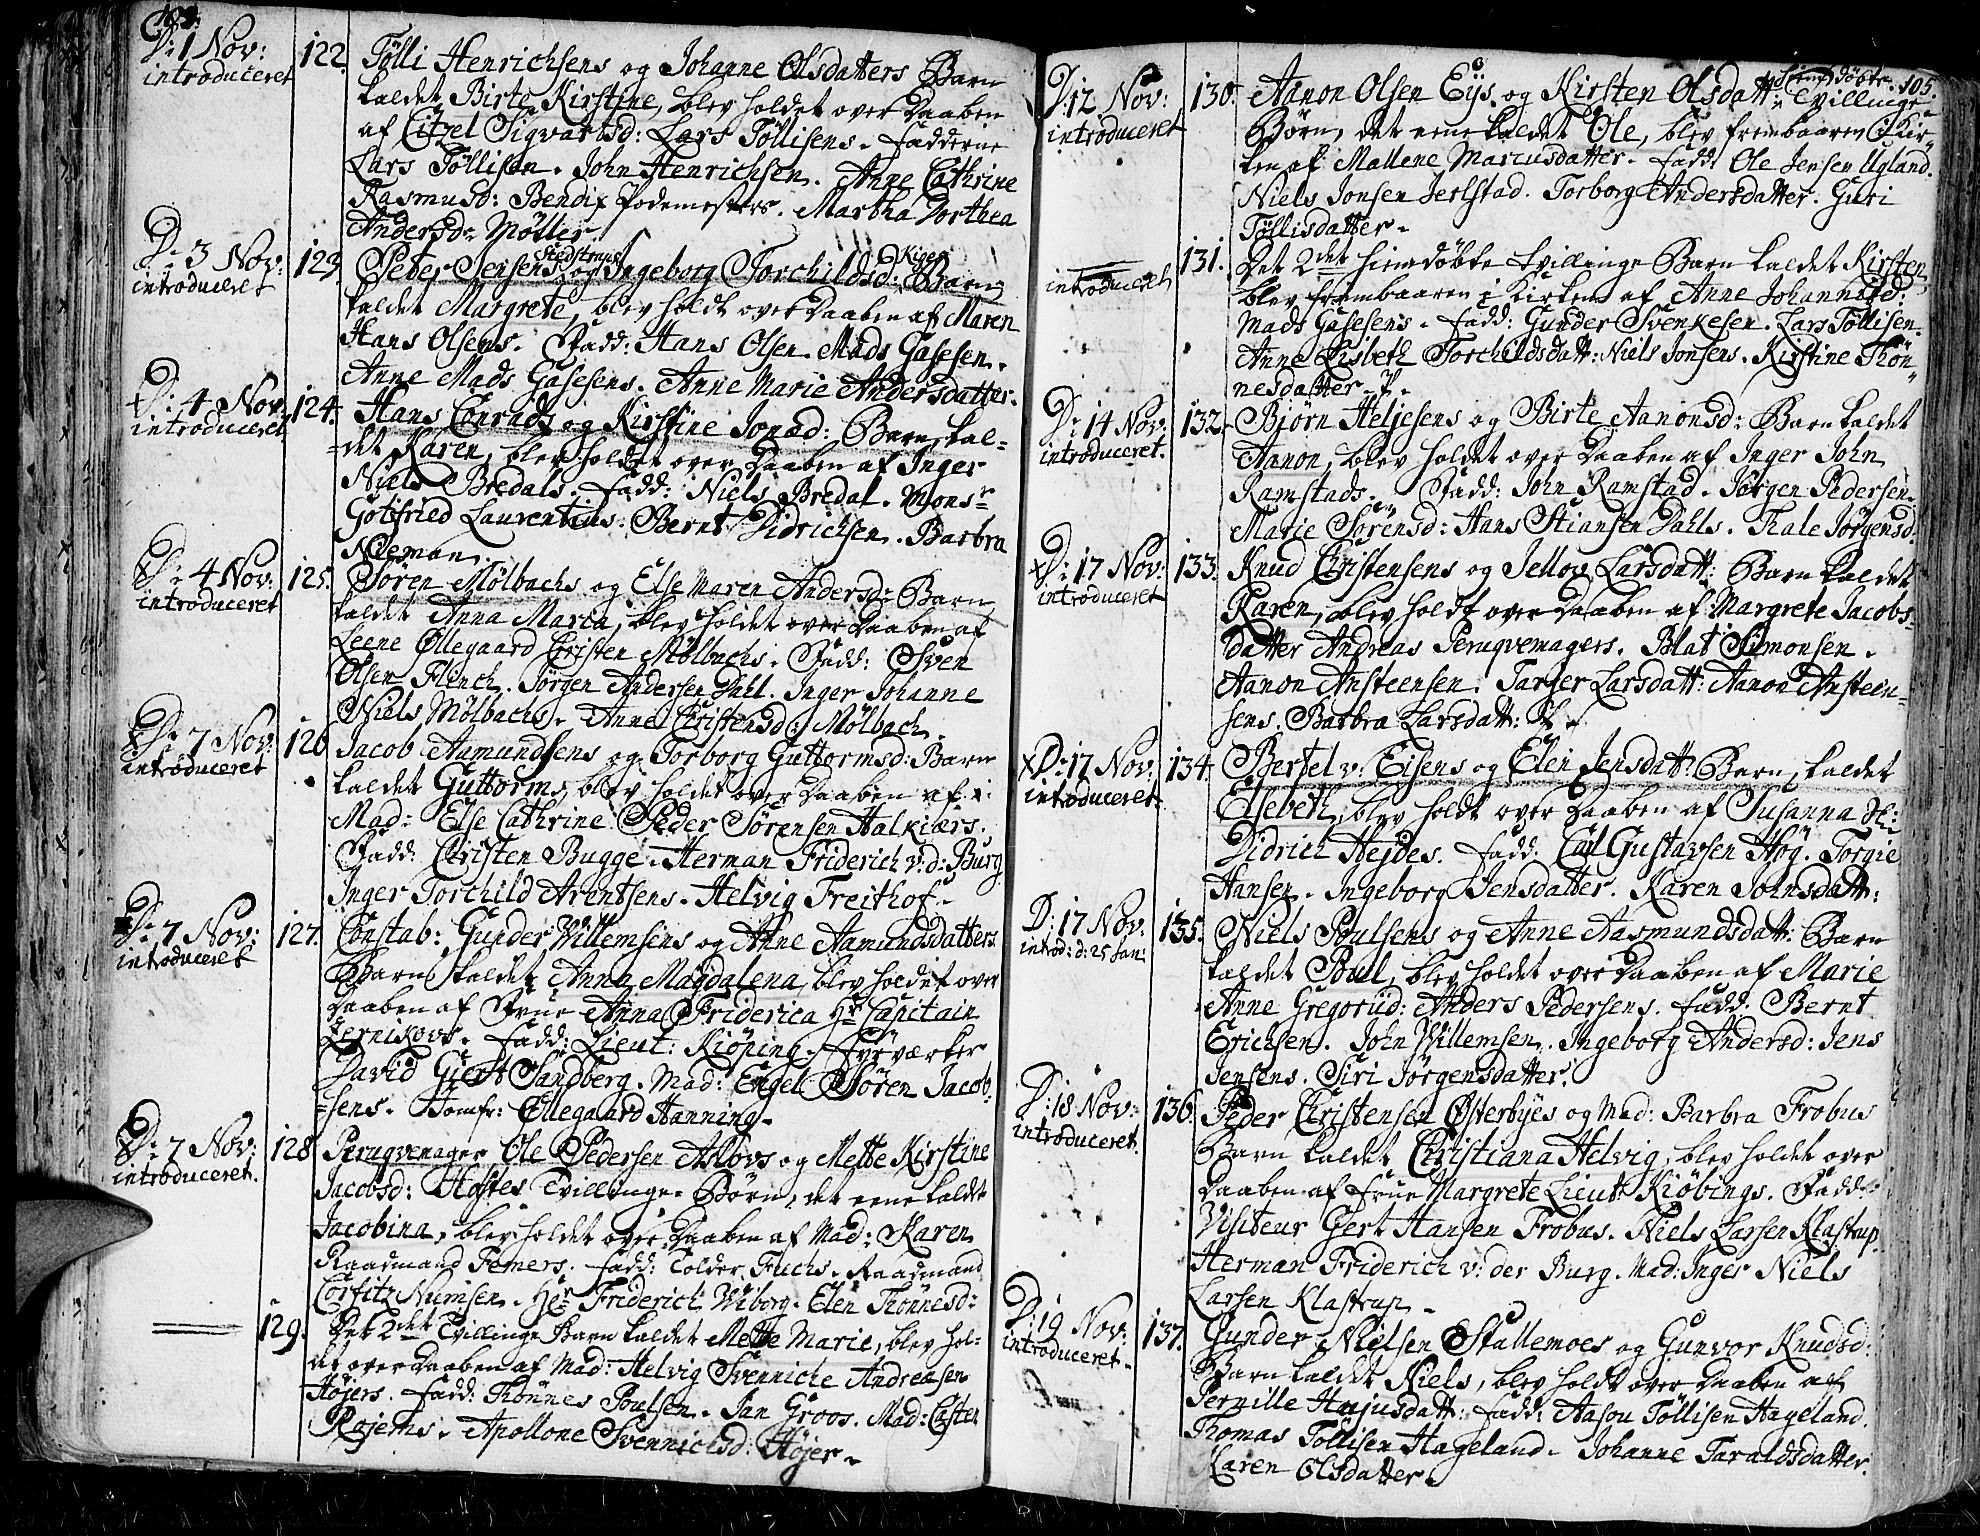 104.
D: 1 Nov: introduceret
122. Tølli Henrichsens og Johanne Olsdatters Barn
kaldet Birte Kirstine, blev holdet over Daaben
af Citzel Sigvartsd: Lars Töllisens. Fadderne
Lars Töllisen. John Henrichsen. Anne Cathrine
Rasmusd: Bendix Podemesters. Martha Dorthea
Andersd: Møller.
D: 3 Nov: introduceret
123. Peter Jensens Stedstrups og Ingeborg Torchildsd: Kiger Barn
kaldet Margrete, blev holdt over Daaben af Maren
Hans Olsens. Fadd: Hans Olsen. Mads Gasesen.
Anne Mads Gasesens. Anne Marie Andersdatter.
D: 4 Nov: introduceret
124. Hans Conrads og Kirstine Jonæd: Barn, kal-
det Karen, blev holdet over Daaben af Inger
Niels Bredals. Fadd: Niels Bredal. Monsr
Gotfried Laurentius. Bernt Didrichsen. Barbra
Nieman.
D: 4 Nov: introduceret
125. Søren Mölbachs og Else Maren Andersd: Barn
kaldet Anna Maria, blev holdet over Daaben af
Leene Øllegaard Christen Mølbachs. Fadd: Sven
Olsen Flinch. Jørgen Andersen Dahl. Inger Johanne
Niels Mölbachs. Anne Christensd: Mølbach.
D: 7 Nov: introduceret
126 Jacob Aamundsens og Torborg Guttormsd: Barn
kaldet Guttorm, blev holdet over Daaben af
Mad: Else Cathrine Peder Sörensen Halkiærs.
Fadd: Christen Bugge. Herman Friderich v: d: Burg
Inger Torchild Arentsens. Helvig Freithof.
D: 7 Nov: introduceret
127. Constab: Gunder Willemsens og Anne Aamundsdatters
Barn kaldet Anna Magdalena, blev holdet over
Daaben af Frue Anna Friderica Hr Capitain
Zernikows. Fadd: Lieut: Kiöping. Fyrværker
David Giert Sandberg. Mad: Engel Sören Jacob-
sens. Jomfr: Ellegaard Hanning.
D: 7 Nov: introduceret.
128 Peruqvemager Ole Pedersen Aslovs og Mette Kirstine
Jacobsd: Hostes Tvillinge-Børn, det eene kaldt
Jacobina, blev holdet over Daaben af Mad: Karen
Raadmand Femers. Fadd: Tolder Fuchs. Raadmand
Corfitz Numsen. Hr Friderich Wiborg. Elen Thönnesd:
129. Det 2det Tvillinge Barn kaldet Mette Marie, blev hol-
det over Daaben af Mad: Helvig Svenniche Andreæsen
Höjers. Fadd: Thönnes Poulsen. Jan Groos. Mad: Casten
Rojems. Apollone Svennichsd: Höjer.
105.
D: 12 Nov: introduceret
130. Aanon Olsen Eijs og Kirsten Olsdatt: hiemdøbte Tvillinge
Børn, det eene kaldet Ole, blev frembaaren i Kir-
ken af Mallene Marcusdatter. Fadd: Ole Jensen Ugland.
Niels Jonsen Jerlstad. Torborg Andersdatter. Guri
Töllisdatter.
introduceret
131. Det 2det hiemdöbte Tvillinge Barn kaldet Kirsten
blev frembaaren i Kirken af Anne Johannesd:
Mads Gasesens. Fadd: Gunder Svenkesen. Lars Töllisen.
Anne Lisbeth Torchildsdatt: Niels Jonsens. Kirstine Thön-
nesdatter.
D: 14 Nov. introduceret.
132. Bjørn Heljesens og Birte Aanonsd: Barn kaldet
Aanon, blev holdet over Daaben af Inger John
Ramstads. Fadd: John Ramstad. Jörgen Pedersen.
Marie Sörensd: Hans Stiansen Dahls. Thale Jörgensd.
D: 17 Nov: introduceret
133. Knud Christensens og Jellov Larsdatt: Barn kaldet
Karen, blev holdt over Daaben af Margrete Jacobs-
datter Andreas Peruqvemagers. Blat Simonsen.
Aanon Ansteensen. Targer Larsdatt: Aanon Ansteen-
sens. Barbra Larsdatt:
D: 17 Nov: introduceret
134. Bertel v. Eisens og Elen Jensdatt: Barn, kaldet
Elsebeth, blev holdt over Daaben af Susanna
Didrich Hejdes. Fadd: Carl Gustavsen Høg. Torgie
Hansen. Ingeborg Jensdatter. Karen Johnsdatt:
D: 17 Nov: introd: d: 25 Jan:
135. Niels Poulsens og Anne Aasmundsdatt: Barn
kaldet Poul, blev holdet over Daaben af Marie
Anne Gregoriid: Anders Pedersens. Fadd: Bernt
Erichsen. John Willemsen. Ingeborg Andersd: Jens
Jensens. Siri Jörgensdatter.
D: 18 Nov: introduceret.
136. Peder Christensen Østerbyes og Mad: Barbra Frobus
Barn kaldet Christiana Helvig, blev holdet over
Daaben af Frue Margrete Lieut: Kiöbings. Fadd:
Visiteur Gert Hansen Frobus. Niels Larsen Klastrup.
Herman Friderich v: der Burg. Mad: Inger Niels
Larsen Klastrup.
D: 19 Nov: introduceret.
137. Gunder Nielsen Stallemoes og Gunvor Knudsd:
Barn kaldet Niels, blev holdt over Daaben af
Pernille Hanjusdatt: Fadd: Aasou Töllisen Hageland.
Thomas Töllisen Hageland. Johanne Taraldsdatter.
Karen Olsdatter.